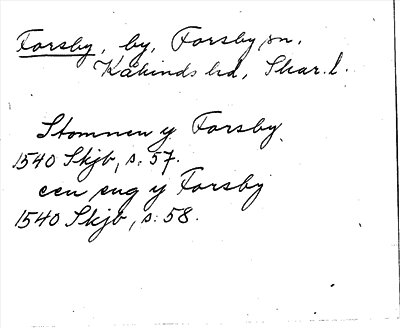 Forsby, by, Forsby sn,
Kåkinds hd, Skar. l.
Stommen y Forsby,
1540 Skjb, s. 57.
een eng y Forsby
1540 Skjb, s. 58.